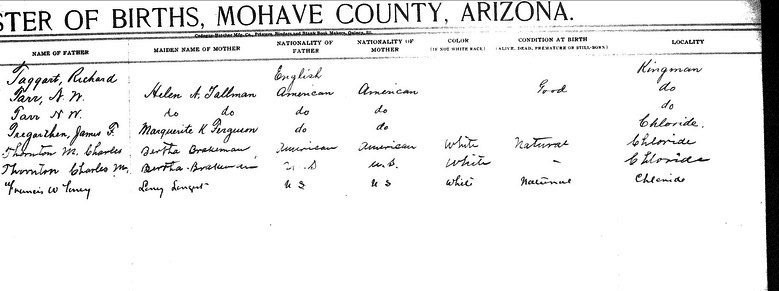 STER OF BIRTHS, MOHAVE COUNTY, ARIZONA.
NAME OF FATHER MAIDEN NAME OF MOTHER NATIONALITY OF FATHER NATIONALITY OF MOTHER COLOR (IF NOT WHITE RACE) CONDITION AT BIRTH (ALIVE, DEAD, PREMATURE OR STILL-BORN.) LOCALITY
Taggart, Richard English Kingman
Tarr, N. W. Helen A. Tallman American American Good do
Tarr N W. do do do do do
Tregarthen, James F. Marguerite K Ferguson do do Chloride.
Thornton M. Charles Bertha Brakeman American American White Natural Chloride
Thornton Charles M. Bertha Brakeman U.S U.S. White – Chloride
Francis W U S U S White Natural Chloride